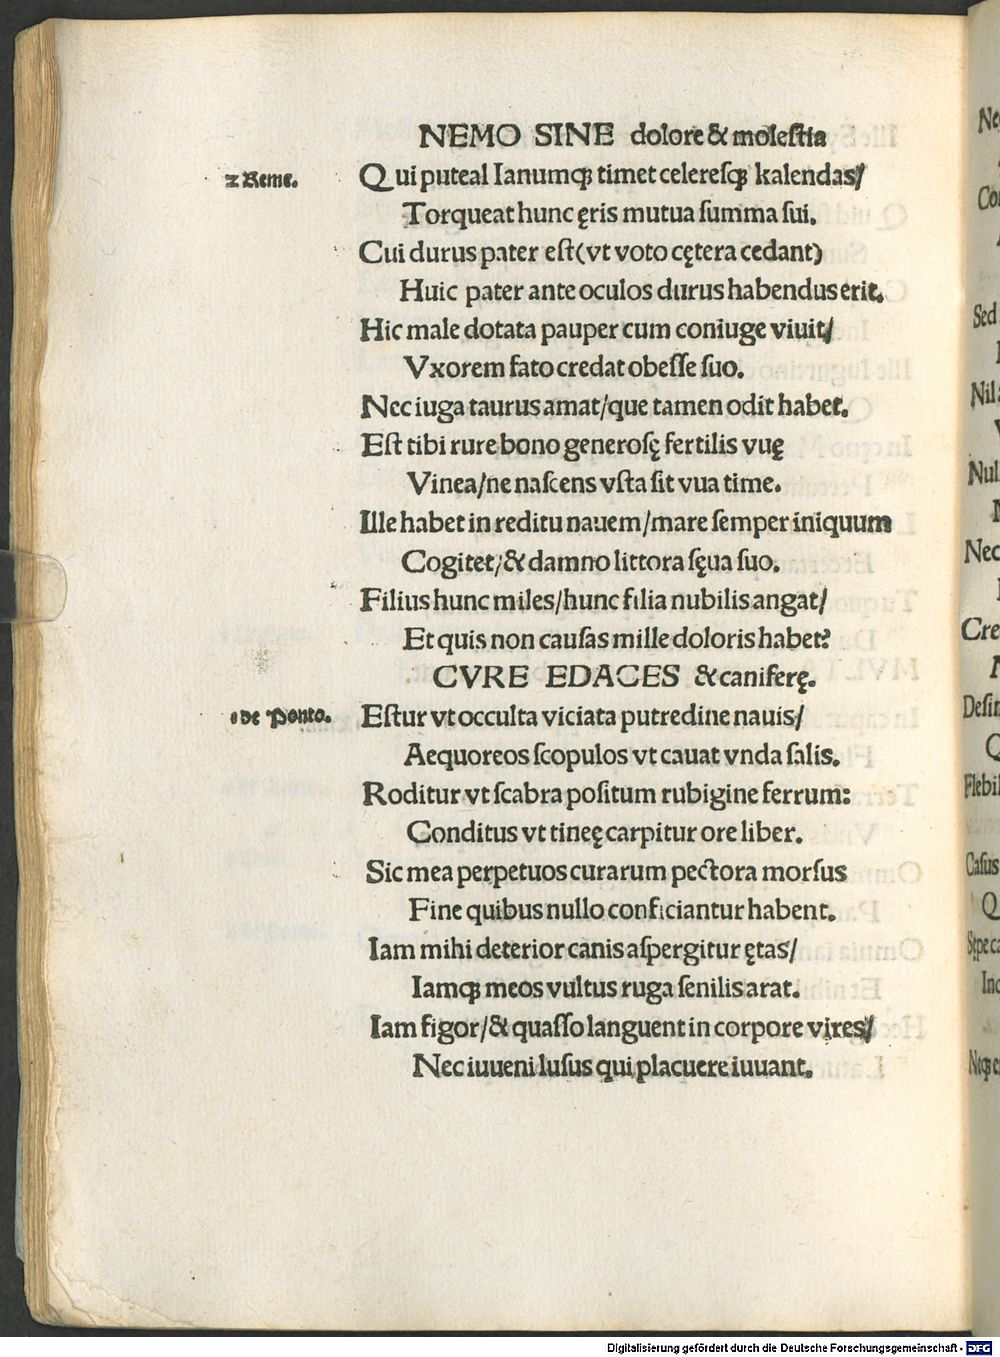 NEMO SINE dolore & moleſtia
2 Reme.
Qui puteal Ianumqꝫ timet celereſqꝫ kalendas/
Torqueat hunc ęris mutua ſumma ſui.
Cui durus pater eſt(vt voto cętera cedant)
Huic pater ante oculos durus habendus erit.
Hic male dotata pauper cum coniuge viuit/
Vxorem fato credat obeſſe ſuo.
Nec iuga taurus amat/que tamen odit habet.
Eſt tibi rure bono generoſę fertilis vuę
Vinea/ne naſcens vſta ſit vua time.
Ille habet in reditu nauem/mare ſemper iniquum
Cogitet/& damno littora ſęua ſuo.
Filius hunc miles/hunc filia nubilis angat/
Et quis non cauſas mille doloris habet?
CVRE EDACES & caniferę.
1 de Ponto.
Eſtur vt occulta viciata putredine nauis/
Aequoreos ſcopulos vt cauat vnda ſalis.
Roditur vt ſcabra poſitum rubigine ferrum:
Conditus vt tineę carpitur ore liber.
Sic mea perpetuos curarum pectora morſus
Fine quibus nullo conficiantur habent.
Iam mihi deterior canis aſpergitur ętas/
Iamqꝫ meos vultus ruga ſenilis arat.
Iam figor/& quaſſo languent in corpore vires/
Nec iuueni luſus qui placuere iuuant.
Sed
Nec
Digitalisierung gefördert durch die Deutsche Forschungsgemeinschaft - DFG